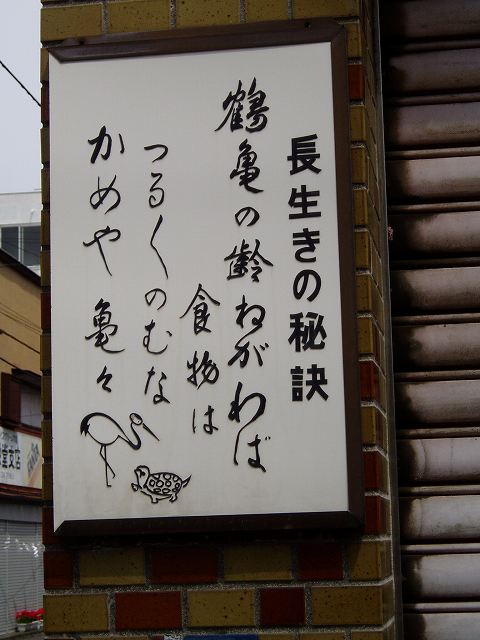 長生きの秘訣
鶴亀の齢ねがわば
食物は
つるくのむな
かめや亀々
堂支店